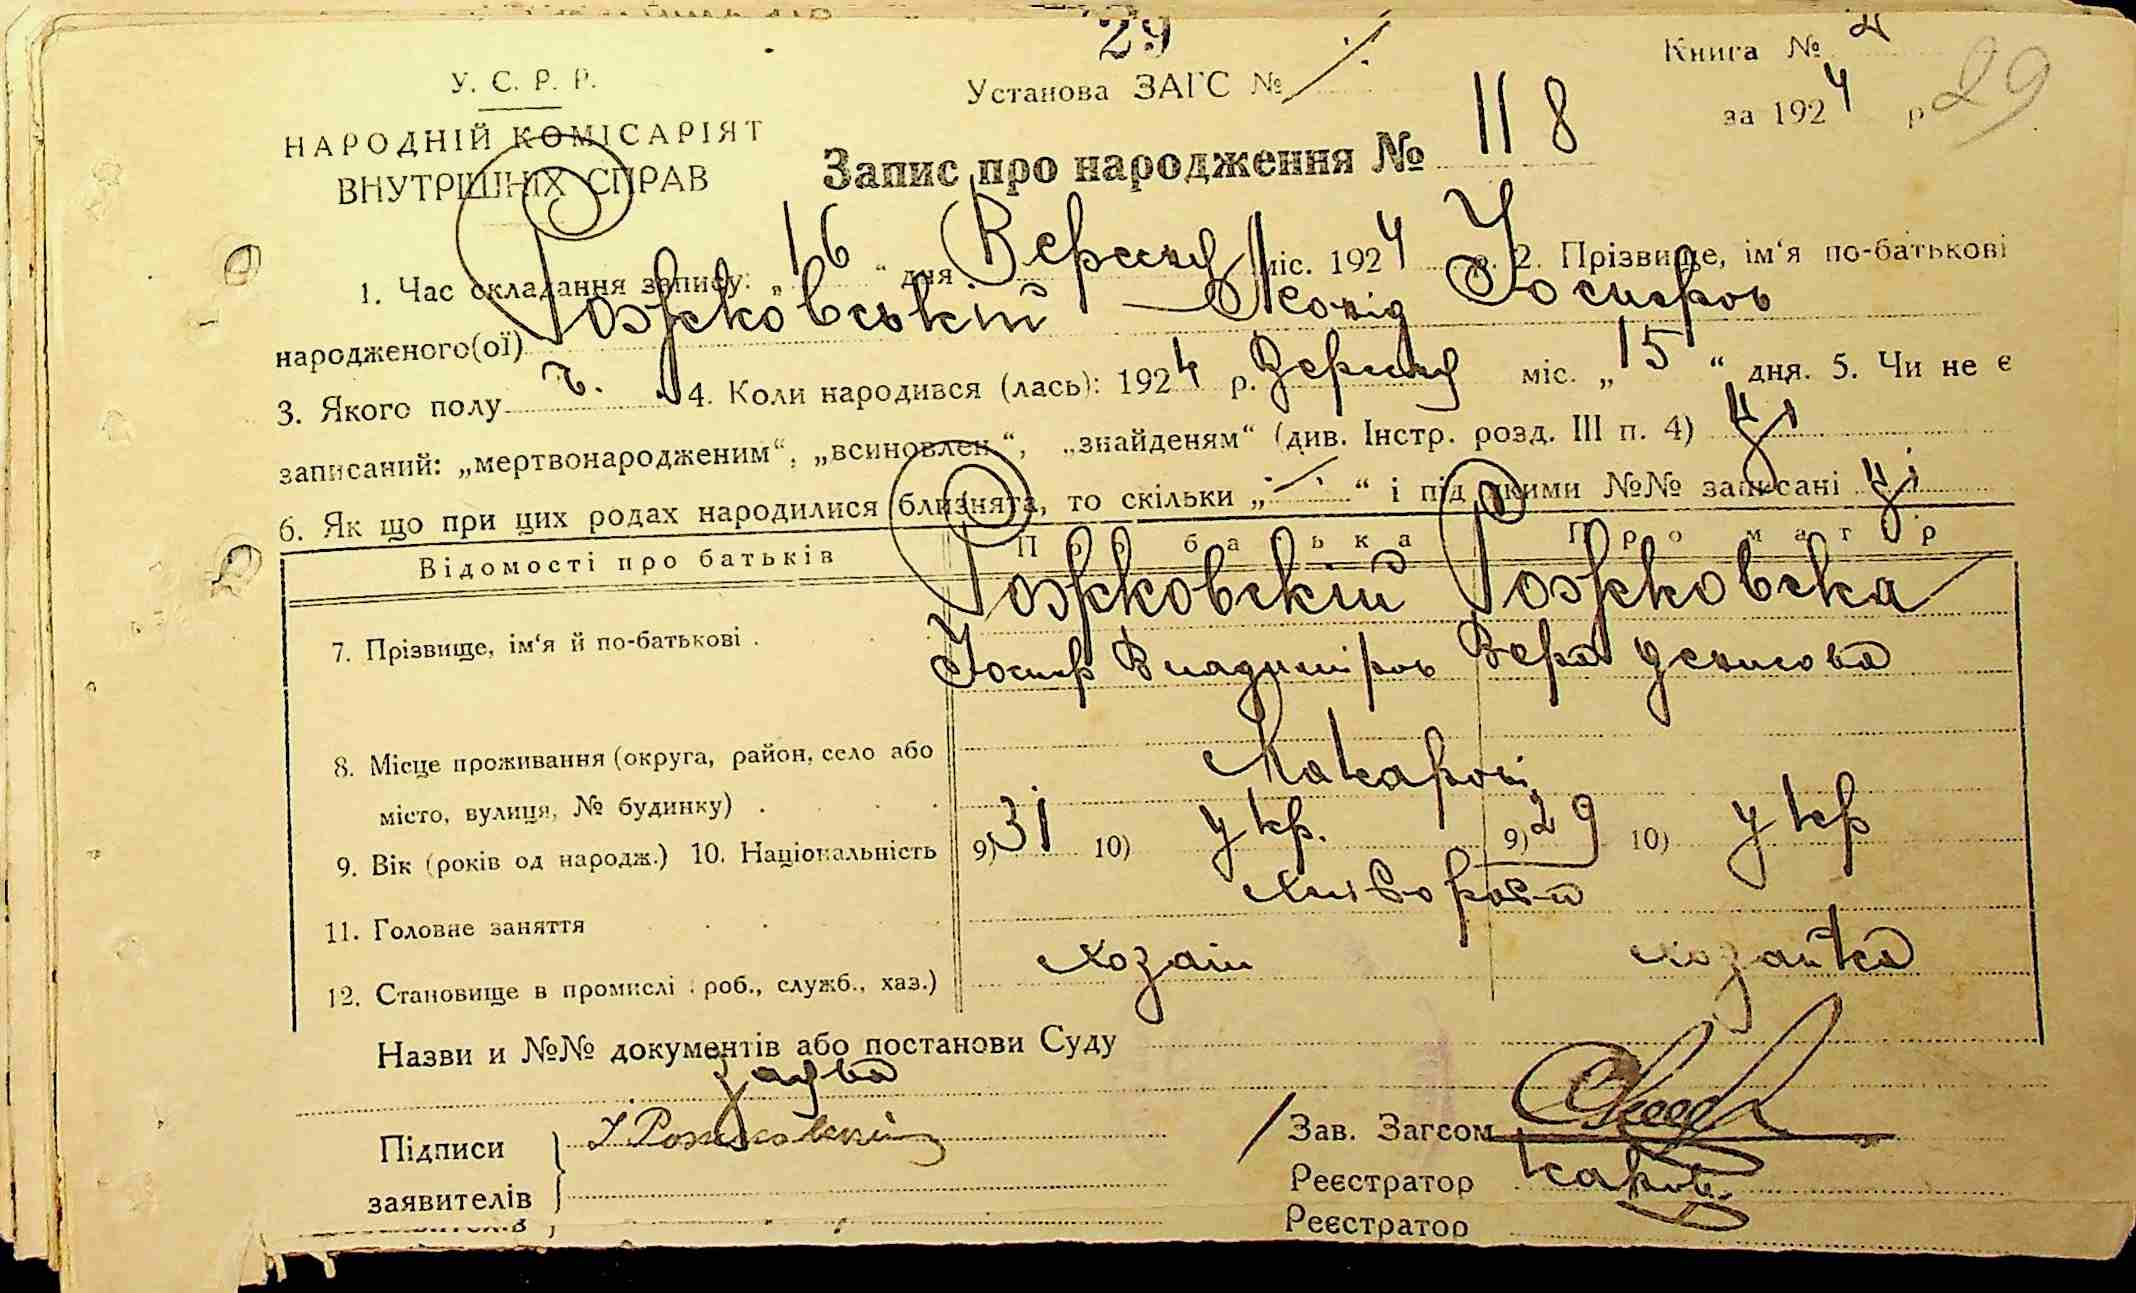 29
Книга № 2
У. С. Р. Р.
Установа ЗАГС №
за 1924 р 29
НАРОДНІЙ КОМІСАРІЯТ
ВНУТРІШНІХ СПРАВ
Запис про народження № 118
1. Час складання запису: „16“ дня Вересня міс. 1924 р. 2. Прізвище, ім‘я по-батькові
народженого(ої) Рожковський Леонід Йосипов
3. Якого полу ч. 4. Коли народився (лась): 1924 р. Вересня міс. „15“ дня. 5. Чи не є
записаний: „мертвонародженим“, „всиновлен.“, „знайденям“ (див. Інстр. розд. III п. 4) Ні
6. Як що при цих родах народилися близнята, то скільки „ “ і під якими №№ записані Ні
Відомості про батьків Про батька Про матір
Рожковскій Рожковска
7. Прізвище, ім‘я й по-батькові .
Йосиф Владиміров Вера Денисова
8. Місце проживання (округа, район, село або
Макарові
місто, вулиця, № будинку) .
9. Вік (років од народж.) 10. Національність 9) 31 10) укр. 9) 29 10) укр
Хлібороби
11. Головне заняття
хозаін хозаійка
12. Становище в промислі (роб., служб., хаз.)
Назви и №№ документів або постанови Суду
заява
Підписи І Рожковский
Зав. Загсом
заявителів
Реєстратор
Реєстратор